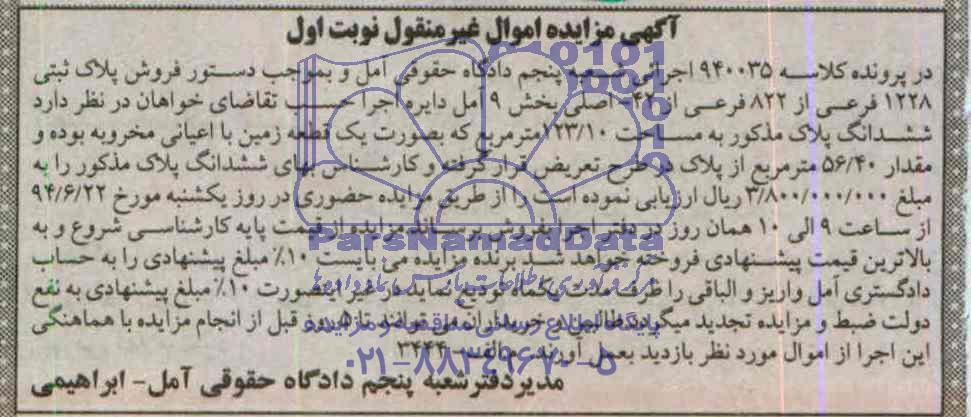 آگهی مزایده اموال غیرمنقول نوبت اول
در پرونده کلاسه ۹۴۰۰۳۵ اجرائی شعبه پنجم دادگاه حقوقی آمل و بموجب دستور فروش پلاک ثبتی
۱۲۲۸ فرعی از ۸۲۲ فرعی از ۴۲- اصلی بخش ۹ آمل دایره اجرا حسب تقاضای خواهان در نظر دارد
ششدانگ پلاک مذکور به مساحت ۱۲۳/۱۰ مترمربع که بصورت یک قطعه زمین با اعیانی مخروبه بوده و
مقدار ۵۶/۴۰ مترمربع از پلاک در طرح تعریض قرار گرفته و کارشناس بهای ششدانگ پلاک مذکور را به
مبلغ ۳/۸۰۰/۰۰۰/۰۰۰ ریال ارزیابی نموده است را از طریق مزایده حضوری در روز یکشنبه مورخ ۹۴/۶/۲۲
از ساعت ۹ الی ۱۰ همان روز در دفتر اجرا بفروش برساند مزایده از قیمت پایه کارشناسی شروع و به
بالاترین قیمت پیشنهادی فروخته خواهد شد برنده مزایده می بایست ۱۰٪ مبلغ پیشنهادی را به حساب
دادگستری آمل واریز و الباقی را ظرف مدت یکماه تودیع نماید در غیر اینصورت ۱۰٪ مبلغ پیشنهادی به نفع
دولت ضبط و مزایده تجدید میگردد طالبین و خریداران می توانند تا ۵ روز قبل از انجام مزایده با هماهنگی
این اجرا از اموال مورد نظر بازدید بعمل آورند. م الف ۳۴۴۴
مدیر دفتر شعبه پنجم دادگاه حقوقی آمل- ابراهیمی
ParsNamadData
۰۲۱-۸۸۳۴۹۶۷۰-۵